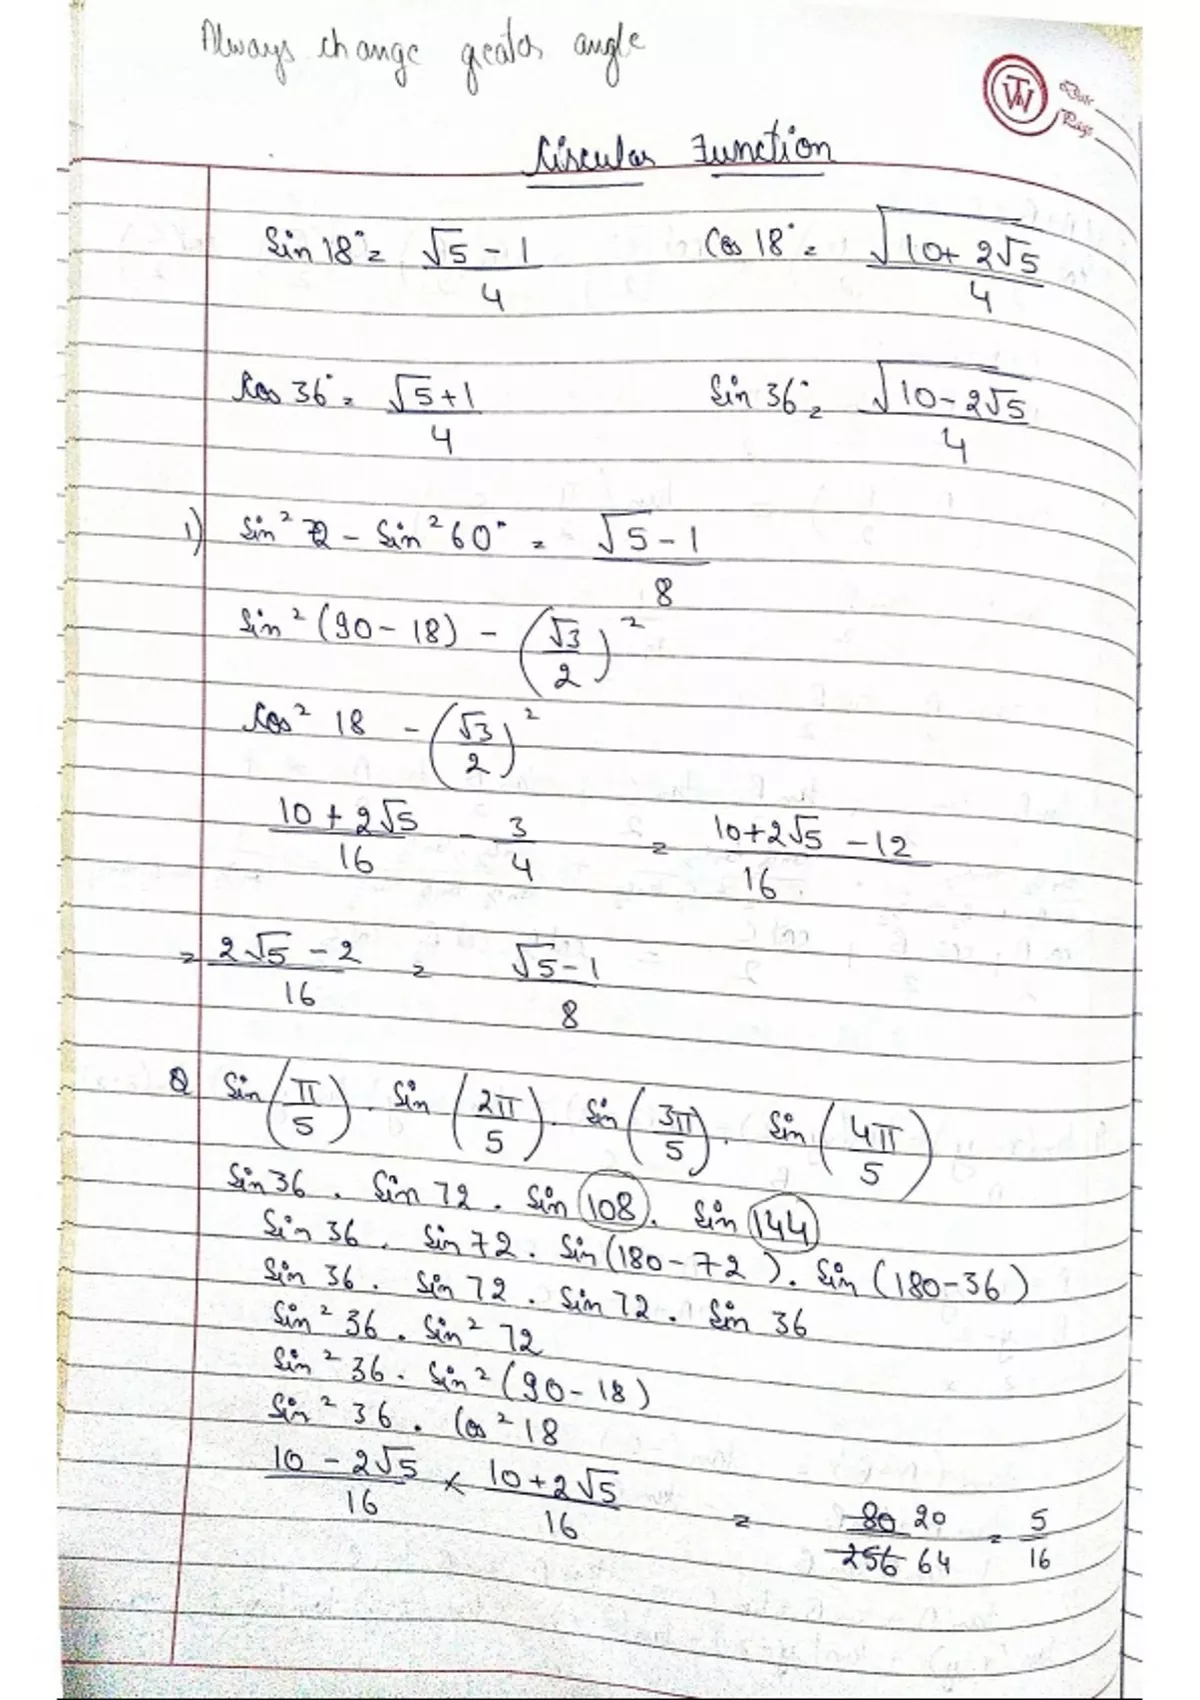 Always change greater angle
TW
Date
Page
Circular Function
Sin 18° = √5 - 1 / 4 Cos 18° = √10 + 2√5 / 4
Cos 36° = √5 + 1 / 4 Sin 36° = √10 - 2√5 / 4
1) Sin² 72 - Sin² 60° = √5 - 1 / 8
Sin² (90 - 18) - (√3 / 2)²
Cos² 18 - (√3 / 2)²
10 + 2√5 / 16 - 3 / 4 = 10 + 2√5 - 12 / 16
= 2√5 - 2 / 16 = √5 - 1 / 8
Q Sin (π / 5) . Sin (2π / 5) . Sin (3π / 5) . Sin (4π / 5)
Sin 36 . Sin 72 . Sin 108 . Sin 144
Sin 36 . Sin 72 . Sin (180 - 72) . Sin (180 - 36)
Sin 36 . Sin 72 . Sin 72 . Sin 36
Sin² 36 . Sin² 72
Sin² 36 . Sin² (90 - 18)
Sin² 36 . Cos² 18
10 - 2√5 / 16 × 10 + 2√5 / 16 = 80 20 / 256 64 = 5 / 16